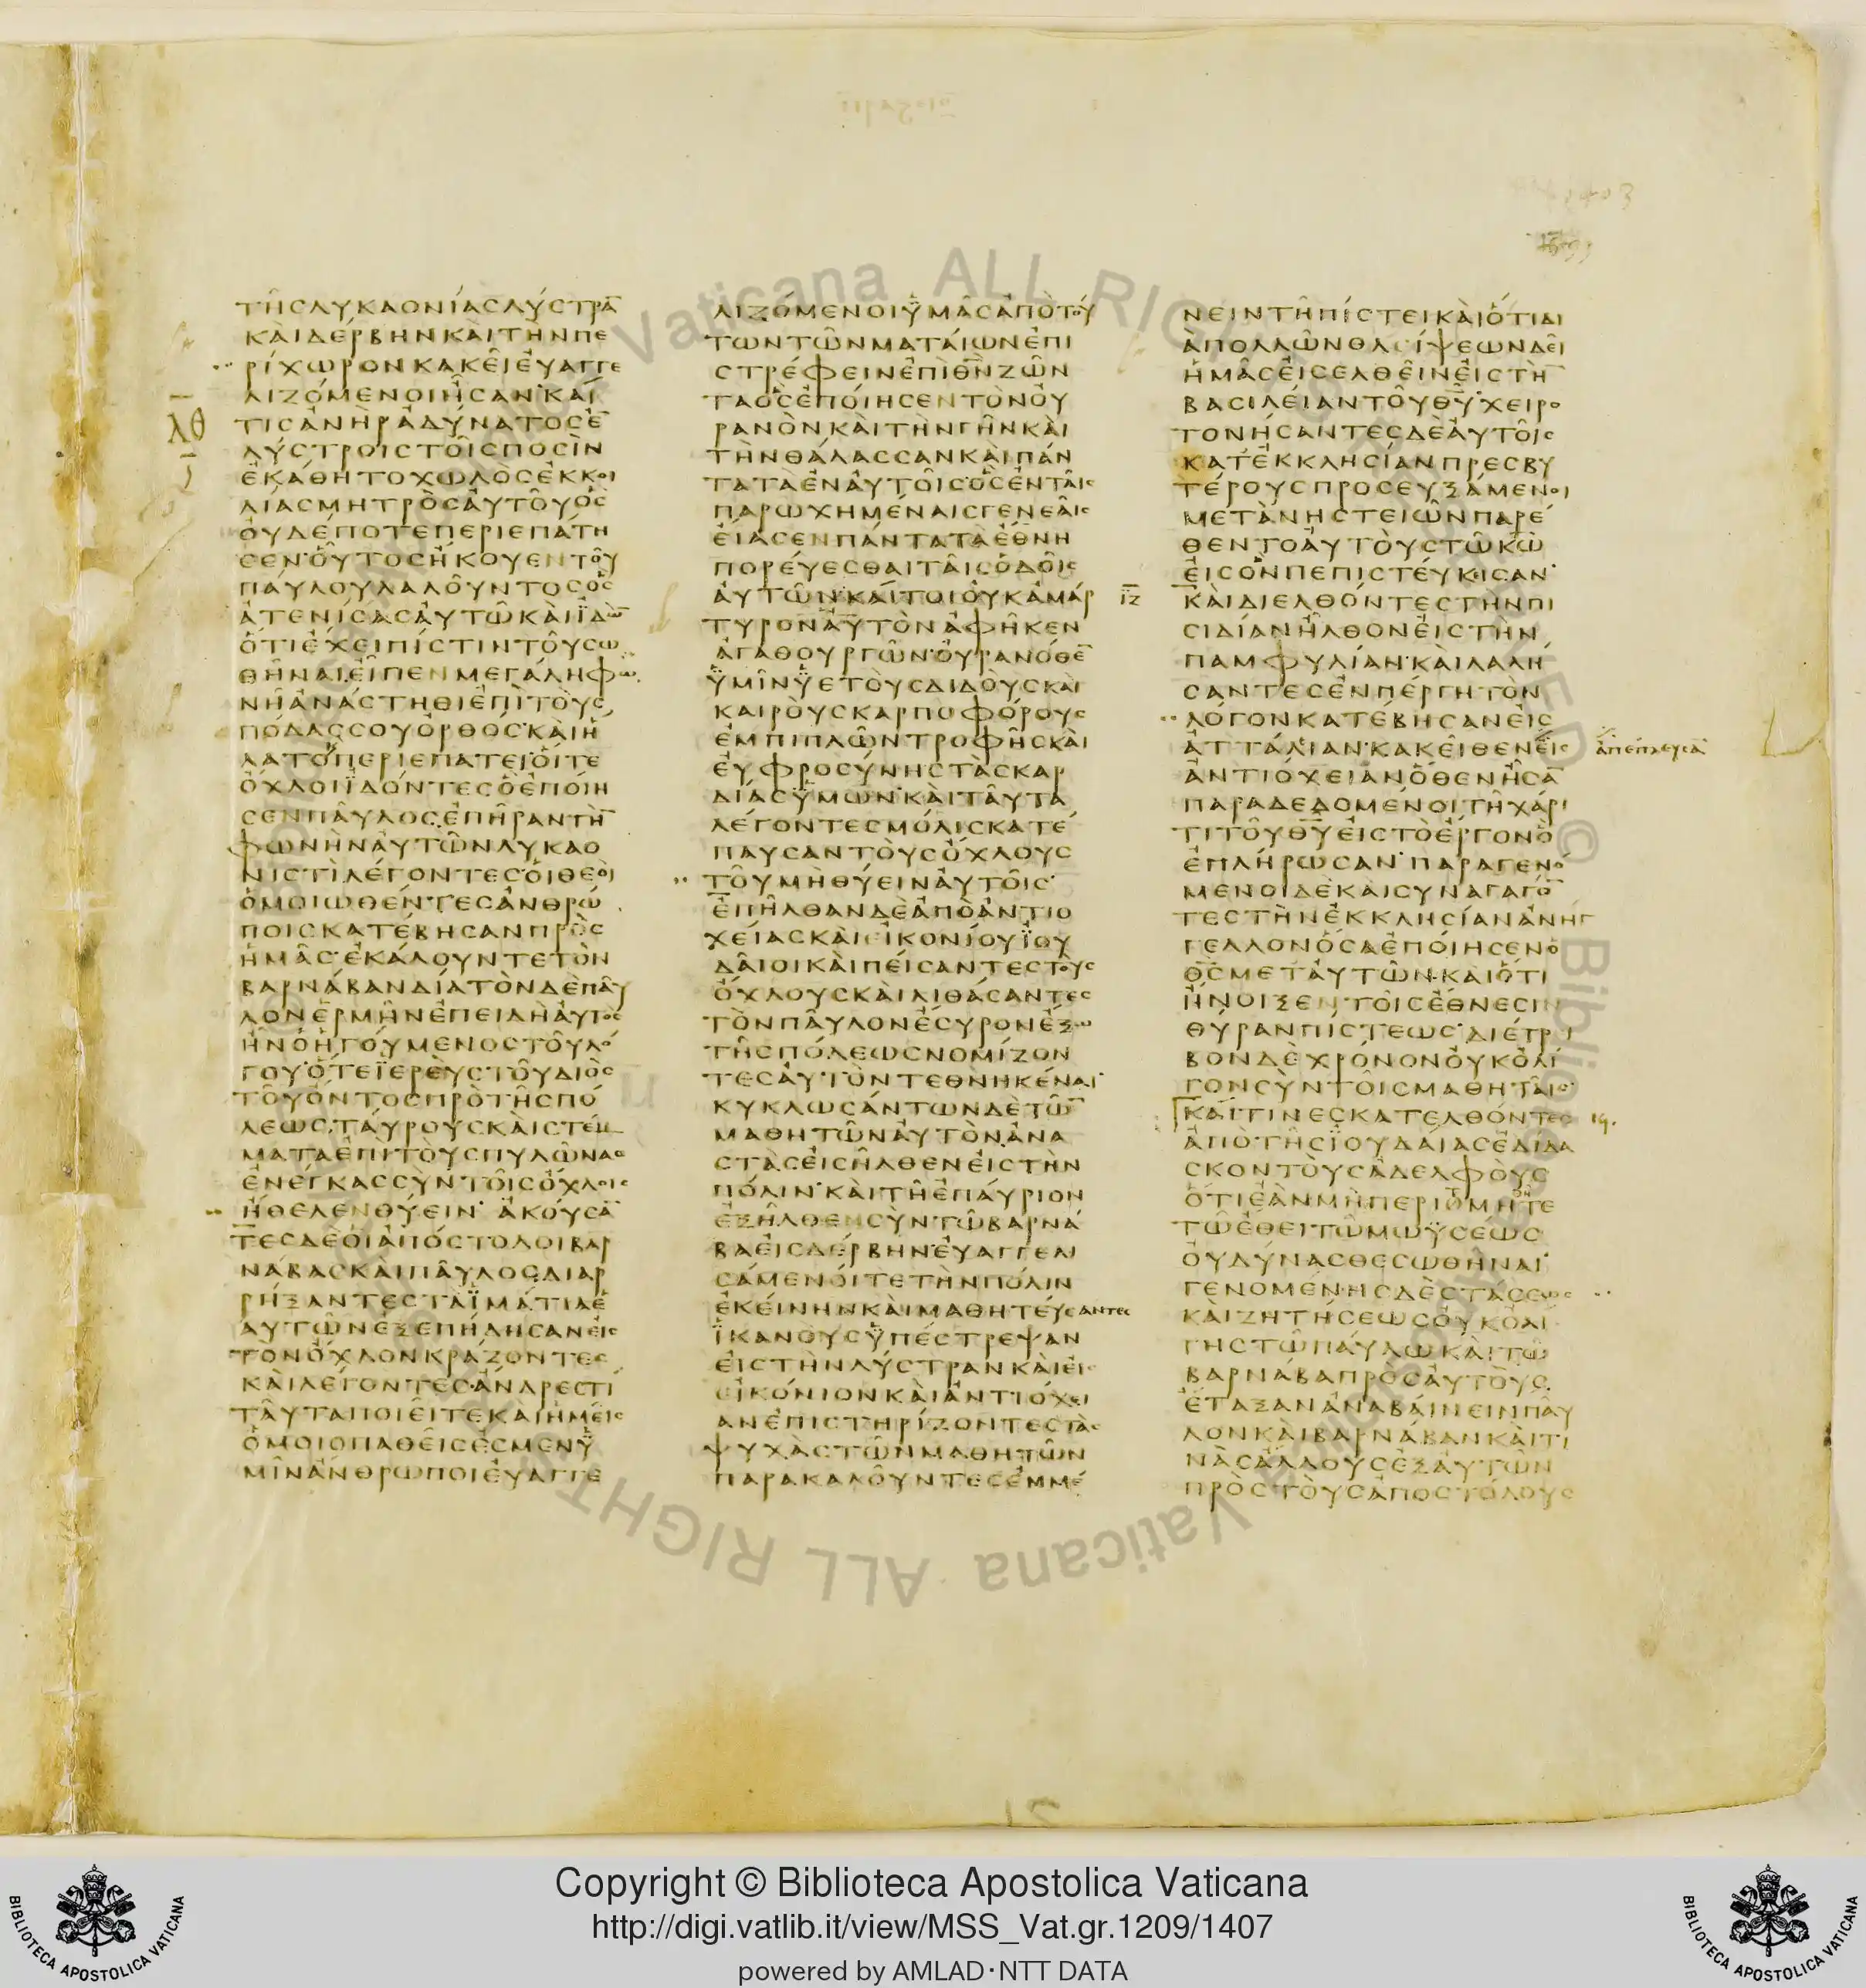 ΤΗ͂ϹΛΥΚΑΟΝΊΑϹΛΎϹΤΡΑ̅
ΚΑῚΔΈΡΒΗΝΚΑῚΤῊΝΠΕ
ΡΊΧΩΡΟΝΚΑΚΕΙ͂ΕΥΑΓΓΕ
ΛΙΖΌΜΕΝΟΙἨϹΑΝ·ΚΑΊ
ΛΘ
ΤΙϹἈΝῊΡἈΔΎΝΑΤΟϹΕ̅
ΛΎϹΤΡΟΙϹΤΟΙ͂ϹΠΟϹῚΝ
ἘΚΆΘΗΤΟΧΩΛῸϹἘΚΚΟΙ
ΛΊΑϹΜΗΤΡῸϹΑΥΤΟΥ͂ΟϹ
ΟΥΔΈΠΟΤΕΠΕΡΙΕΠΆΤΗ
ϹΕΝ·ΟΥΤΟϹΗΚΟΥΕΝΤΟΥ͂
ΠΑΎΛΟΥΛΑΛΟΥ͂ΝΤΟϹΟϹ
ἈΤΕΝΊϹΑϹΑΥΤΩ͂ΚΑῚΪΔΩ̅
ΟΤΙΕΧΕΙΠΊϹΤΙΝΤΟΥ͂ϹΩ
ΘΗ͂ΝΑΙΕΙΠΕΝΜΕΓΆΛΗΦΩ
ΝΗ͂ΑΝΆϹΤΗΘΙΕΠῚΤΟῪϹ
ΠΌΔΑϹϹΟΥΟΡΘΟϹ·ΚΑῚΗ
ΛΑΤΟΠΕΡΙΕΠΑΤΕΙ·ΟΙΤΕ
ΟΧΛΟΙΪΔΌΝΤΕϹΟΕΠΟΊΗ
ϹΕΝΠΑΥ͂ΛΟϹΕΠΗ͂ΡΑΝΤΗ̅
ΦΩΝῊΝΑΥΤΩ͂ΝΛΥΚΑΟ
ΝΙϹΤῚΛΈΓΟΝΤΕϹ·ΟΙΘΕΟῚ
ΟΜΟΙΩΘΈΝΤΕϹΑΝΘΡΏ
ΠΟΙϹΚΑΤΈΒΗϹΑΝΠΡῸϹ
ΗΜΑ͂Ϲ·ΕΚΆΛΟΥΝΤΕΤῸΝ
ΒΑΡΝΆΒΑΝΔΊΑΤῸΝΔῈΠΑΥ͂
ΛΟΝΕΡΜΗ͂ΝΕΠΕΙΔῊΑΥΤῸϹ
ΗΝΟΗΓΟΎΜΕΝΟϹΤΟΥ͂ΛΌ
ΓΟΥ·ΟΤΕΪΕΡΕῪϹΤΟΥ͂ΔΙῸϹ
ΤΟΥ͂ΟΝΤΟϹΠΡῸΤΗ͂ϹΠΌ
ΛΕΩϹ·ΤΑΎΡΟΥϹΚΑῚϹΤΈΜ
ΜΑΤΑΕΠῚΤΟῪϹΠΥΛΩ͂ΝΑϹ
ΕΝΈΓΚΑϹϹῪΝΤΟΙ͂ϹΟΧΛΟΙϹ
ΗΘΕΛΕΝΘΎΕΙΝ·ΑΚΟΎϹΑ̅
ΤΕϹΔῈΟΙΑΠΌϹΤΟΛΟΙΒΑΡ
ΝΆΒΑϹΚΑῚΠΑΥ͂ΛΟϹ·ΔΙΑΡ
ΡΉΞΑΝΤΕϹΤᾺΪΜΆΤΙΑΕ
ΑΥΤΩ͂ΝΕΞΕΠΉΔΗϹΑΝΕΙϹ
ΤῸΝΟΧΛΟΝΚΡΆΖΟΝΤΕϹ
ΚΑῚΛΈΓΟΝΤΕϹ·ΑΝΔΡΕϹΤΊ
ΤΑΥ͂ΤΑΠΟΙΕΙ͂ΤΕΚΑῚΗΜΕΙ͂Ϲ
ΟΜΟΙΟΠΑΘΕΙ͂ϹΕϹΜΕΝΫ
ΜΙ͂ΝΑΝΘΡΩΠΟΙΕΥΑΓΓΕ
ΛΙΖΌΜΕΝΟΙΫΜΑ͂ϹΑΠῸΤΟΎ
ΤΩΝΤΩ͂ΝΜΑΤΑΊΩΝΕΠΙ
ϹΤΡΈΦΕΙΝΕΠῚΘ̅Ν̅ΖΩ͂Ν
ΤΑΟϹΕΠΟΊΗϹΕΝΤῸΝΟΥ
ΡΑΝῸΝΚΑῚΤῊΝΓΗ͂ΝΚΑῚ
ΤῊΝΘΆΛΑϹϹΑΝΚΑῚΠΆΝ
ΤΑΤᾺΕΝΑΥΤΟΙ͂Ϲ·ΟϹΕΝΤΑΙ͂Ϲ
ΠΑΡΩΧΗΜΈΝΑΙϹΓΕΝΕΑΙ͂Ϲ
ΕΙΑϹΕΝΠΆΝΤΑΤᾺΕΘΝΗ
ΠΟΡΕΎΕϹΘΑΙΤΑΙ͂ϹΟΔΟΙ͂Ϲ
ΑΥΤΩ͂Ν·ΚΑΊΤΟΙΟΥΚΑΜΆΡ
ΤΥΡΟΝΑΥΤῸΝΑΦΗ͂ΚΕΝ
ΑΓΑΘΟΥΡΓΩ͂Ν·ΟΥΡΑΝΌΘΕ̅
ΫΜΙ͂ΝΫΕΤΟῪϹΔΙΔΟῪϹΚΑῚ
ΚΑΙΡΟῪϹΚΑΡΠΟΦΌΡΟΥϹ
ΕΜΠΙΠΛΩ͂ΝΤΡΟΦΗ͂ϹΚΑῚ
ΕΥΦΡΟϹΎΝΗϹΤᾺϹΚΑΡ
ΔΊΑϹΫΜΩ͂Ν·ΚΑῚΤΑΥ͂ΤΑ
ΛΈΓΟΝΤΕϹΜΌΛΙϹΚΑΤΈ
ΠΑΥϹΑΝΤΟῪϹΟΧΛΟΥϹ
ΤΟΥ͂ΜῊΘΎΕΙΝΑΥΤΟΙ͂Ϲ·
ΕΠΗ͂ΛΘΑΝΔῈΑΠῸΑΝΤΙΟ
ΧΕΊΑϹΚΑῚΕΙΚΟΝΊΟΥΪΟΥ
ΔΑΙ͂ΟΙΚΑῚΠΕΊϹΑΝΤΕϹΤΟῪϹ
ΟΧΛΟΥϹΚΑῚΛΙΘΆϹΑΝΤΕϹ
ΤῸΝΠΑΥ͂ΛΟΝΕϹΥΡΟΝΕΞΩ
ΤΗ͂ϹΠΌΛΕΩϹΝΟΜΊΖΟΝ
ΤΕϹΑΥΤῸΝΤΕΘΝΗΚΈΝΑΙ·
ΚΥΚΛΩϹΆΝΤΩΝΔῈΤΩ̅
ΜΑΘΗΤΩ͂ΝΑΥΤῸΝ·ΑΝΑ
ϹΤᾺϹΕΙϹΗΛΘΕΝΕΙϹΤῊΝ
ΠΌΛΙΝ·ΚΑῚΤΗ͂ΕΠΑΎΡΙΟΝ
ΕΞΗ͂ΛΘΕΝϹῪΝΤΩ͂ΒΑΡΝΆ
ΒΑΕΙϹΔΈΡΒΗΝ·ΕΥΑΓΓΕΛΙ
ϹΆΜΕΝΟΊΤΕΤῊΝΠΌΛΙΝ
ΕΚΕΊΝΗΝΚΑῚΜΑΘΗΤΕΎϹΑΝΤΕϹ
ΪΚΑΝΟῪϹΫΠΈϹΤΡΕΨΑΝ
ΕΙϹΤῊΝΛΎϹΤΡΑΝΚΑῚΕΙϹ
ΕΙΚΌΝΙΟΝΚΑῚΑΝΤΙΌΧΕΙ
ΑΝΕΠΙϹΤΗΡΊΖΟΝΤΕϹΤᾺϹ
ΨΥΧᾺϹΤΩ͂ΝΜΑΘΗΤΩ͂Ν
ΠΑΡΑΚΑΛΟΥ͂ΝΤΕϹΕΜΜΈ
ΝΕΙΝΤΗ͂ΠΊϹΤΕΙΚΑῚΟΤΙΔΙ
ᾺΠΟΛΛΩ͂ΝΘΛΕΊΨΕΩΝΔΕΙ͂
ΗΜΑ͂ϹΕΙϹΕΛΘΕΙ͂ΝΕΙϹΤῊ̅
ΒΑϹΙΛΕΊΑΝΤΟΥ͂Θ̅Υ̅·ΧΕΙΡΟ
ΤΟΝΉϹΑΝΤΕϹΔῈΑΥΤΟΙ͂Ϲ
ΚΑΤΕΚΚΛΗϹΊΑΝΠΡΕϹΒΥ
ΤΈΡΟΥϹΠΡΟϹΕΥΞΆΜΕΝΟΙ
ΜΕΤᾺΝΗϹΤΕΙΩ͂ΝΠΑΡΈ
ΘΕΝΤΟΑΥΤΟῪϹΤΩ͂Κ̅Ω̅
ΕΙϹΟΝΠΕΠΙϹΤΕΎΚΕΙϹΑΝ·
ΙΖ
ΚΑῚΔΙΕΛΘΌΝΤΕϹΤῊΝΠΙ
ϹΙΔΊΑΝΗΛΘΟΝΕΙϹΤῊΝ
ΠΑΜΦΥΛΊΑΝ·ΚΑῚΛΑΛΉ
ϹΑΝΤΕϹΕΝΠΈΡΓΗΤῸΝ
ΛΌΓΟΝΚΑΤΈΒΗϹΑΝΕΙϹ
ΑΤΤΆΛΙΑΝ·ΚΑΚΕΙ͂ΘΕΝΕΙϹ
ἀπέπλευσα̅
ΑΝΤΙΌΧΕΙΑΝΟΘΕΝΗϹΑ̅
ΠΑΡΑΔΕΔΟΜΈΝΟΙΤΗ͂ΧΆΡΙ
ΤΙΤΟΥ͂Θ̅Υ̅ΕΙϹΤῸΕΡΓΟΝΟ
ΕΠΛΉΡΩϹΑΝ·ΠΑΡΑΓΕΝΌ
ΜΕΝΟΙΔῈΚΑῚϹΥΝΑΓΑΓΌ̅
ΤΕϹΤῊΝΕΚΚΛΗϹΊΑΝΑΝΉΓ
ΓΕΛΛΟΝΟϹΑΕΠΟΊΗϹΕΝΟ
Θ̅Ϲ̅ΜΕΤΑΥΤΩ͂Ν·ΚΑῚΟΤΙ
ΗΝΟΙΞΕΝΤΟΙ͂ϹΕΘΝΕϹΙΝ
ΘΎΡΑΝΠΊϹΤΕΩϹ·ΔΙΈΤΡΙ
ΒΟΝΔῈΧΡΌΝΟΝΟΥΚΟΛΊ
ΓΟΝϹῪΝΤΟΙ͂ϹΜΑΘΗΤΑΙ͂Ϲ·
ΚΑΊΤΙΝΕϹΚΑΤΕΛΘΌΝΤΕϹ
ΑΠῸΤΗ͂ϹΪΟΥΔΑΊΑϹΕΔΊΔΑ
ϹΚΟΝΤΟῪϹΑΔΕΛΦΟῪϹ
ΟΤΙΕᾺΝΜῊΠΕΡΙΤΜΗΘΗ͂ΤΕ
ΤΩ͂ΕΘΕΙΤΩ͂ΜΩΫϹΈΩϹ
ΟΥΔΎΝΑϹΘΕϹΩΘΗ͂ΝΑΙ·
ΓΕΝΟΜΈΝΗϹΔῈϹΤΆϹΕΩϹ
ΚΑῚΖΗΤΉϹΕΩϹΟΥΚΟΛΊ
ΓΗϹΤΩ͂ΠΑΎΛΩΚΑῚΤΩ͂
ΒΑΡΝΆΒΑΠΡῸϹΑΥΤΟῪϹ
ΕΤΑΞΑΝΑΝΑΒΑΊΝΕΙΝΠΑΥ͂
ΛΟΝΚΑῚΒΑΡΝΆΒΑΝΚΑῚΤΙ
ΝᾺϹΑΛΛΟΥϹΕΞΑΥΤΩ͂Ν
ΠΡῸϹΤΟῪϹΑΠΟϹΤΌΛΟΥϹ
Copyright © Biblioteca Apostolica Vaticana
http://digi.vatlib.it/view/MSS_Vat.gr.1209/1407
powered by AMLAD·NTT DATA
BIBLIOTECA APOSTOLICA VATICANA
BIBLIOTECA APOSTOLICA VATICANA